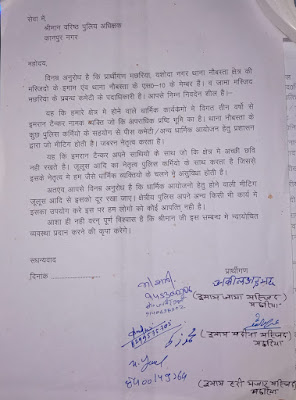 सेवा में,
श्रीमान वरिष्ठ पुलिस अधीक्षक
कानपुर नगर
महोदय,
विनम्र अनुरोध है कि प्रार्थीगण मछरिया, यशोदा नगर थाना नौबस्ता क्षेत्र की
मस्जिदो के इमाम एंव थाना नौबस्ता के एस0-10 के मेम्बर है। व जामा मस्जिद
मछरिया के प्रबन्ध कमेटी के पदाधिकारी है। आपसे निम्न निवेदन शील है:-
यह कि हमारे क्षेत्र मे होने वाले धार्मिक कार्यक्रमो मे विगत तीन वर्षो से
इमरान टैन्कर नामक व्यक्ति जो कि अपराधिक प्रवि भूमि का है। थाना नौबस्ता के
कुछ पुलिस कर्मियो के सहयोग से पीस कमेटी/अन्य धार्मिक आयोजन हेतु प्रशासन
द्वारा जो मीटिंग होती है। जबरन नेतृत्व करता है।
यह कि इमरान टैन्कर अपने साथियो के साथ जो कि क्षेत्र मे अच्छी छवि
नही रखते है। जुलूस आदि का नेतृत्व पुलिस कर्मियो के साथ करता है जिससे
इसके नेतृत्व मे हम जैसे धार्मिक व्यक्तियो के चलने मे असुविधा होती है।
अतएव आपसे विनम्र अनुरोध है कि धार्मिक आयोजनो हेतु होने वाली मीटिंग
जुलूस आदि से इसको दूर रखा जाए। क्षेत्रीय पुलिस अपने अन्य किसी भी कार्य मे
इसका उपयोग करे इस पर हम लोगो को कोई आपत्ति नही है।
आशा ही नही वरन् पूर्ण विश्वास है कि श्रीमान जी इस सम्बन्ध मे न्यायोचित
व्यवस्था प्रदान करने की कृपा करेगे।
सधन्यवाद
दिनांक
प्रार्थीगण
(इमाम जामा मस्जिद)
मछरिया
(इमाम मदीना मस्जिद)
मछरिया
8400149264
(इमाम मस्जिद)
मछरिया